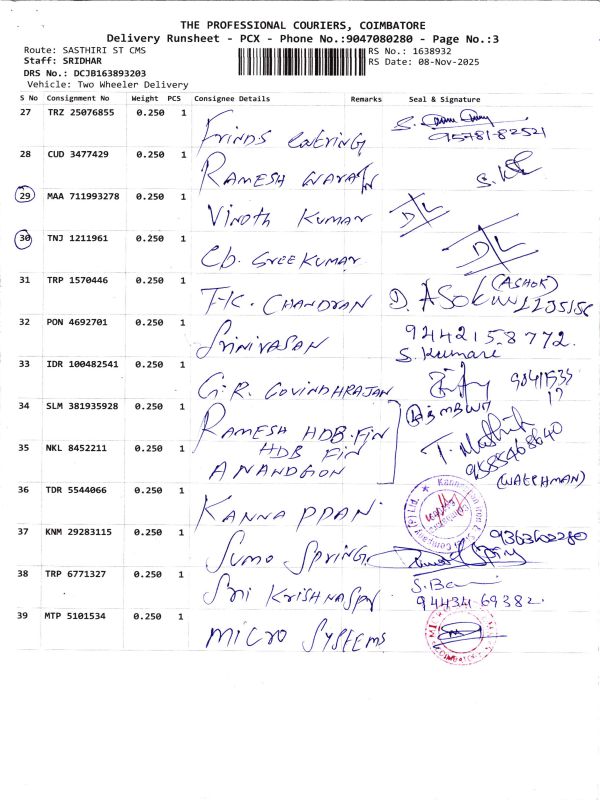 THE PROFESSIONAL COURIERS, COIMBATORE
Delivery Runsheet - PCX - Phone No.:9047080280 - Page No.:3
Route: SASTHIRI ST CMS
RS No.: 1638932
Staff: SRIDHAR
RS Date: 08-Nov-2025
DRS No.: DCJB163893203
Vehicle: Two Wheeler Delivery
S No Consignment No Weight PCS Consignee Details Remarks Seal & Signature
27 TRZ 25076855 0.250 1 Frinds Catering
95781-82521
28 CUD 3477429 0.250 1 RAMESH
29 MAA 711993278 0.250 1 Vinoth Kumar D/L
30 TNJ 1211961 0.250 1 Cb. SreeKumar D/L
31 TRP 1570446 0.250 1 T.K. CHANDRAN D. (ASHOK)
32 PON 4692701 0.250 1 Srinivasan 9442158772.
S. Kumari
33 IDR 100482541 0.250 1 G.R. GOVINDHRAJAN
34 SLM 381935928 0.250 1 RAMESH HDB.Fin
HDB Fin
35 NKL 8452211 0.250 1 ANANDGON T.
9585468640
(WATCHMAN)
36 TDR 5544066 0.250 1 KANNAPPAN
37 KNM 29283115 0.250 1 Sumo Spring 9363602280
38 TRP 6771327 0.250 1 Sri Krishna
94434-69382.
39 MTP 5101534 0.250 1 Micro Systems